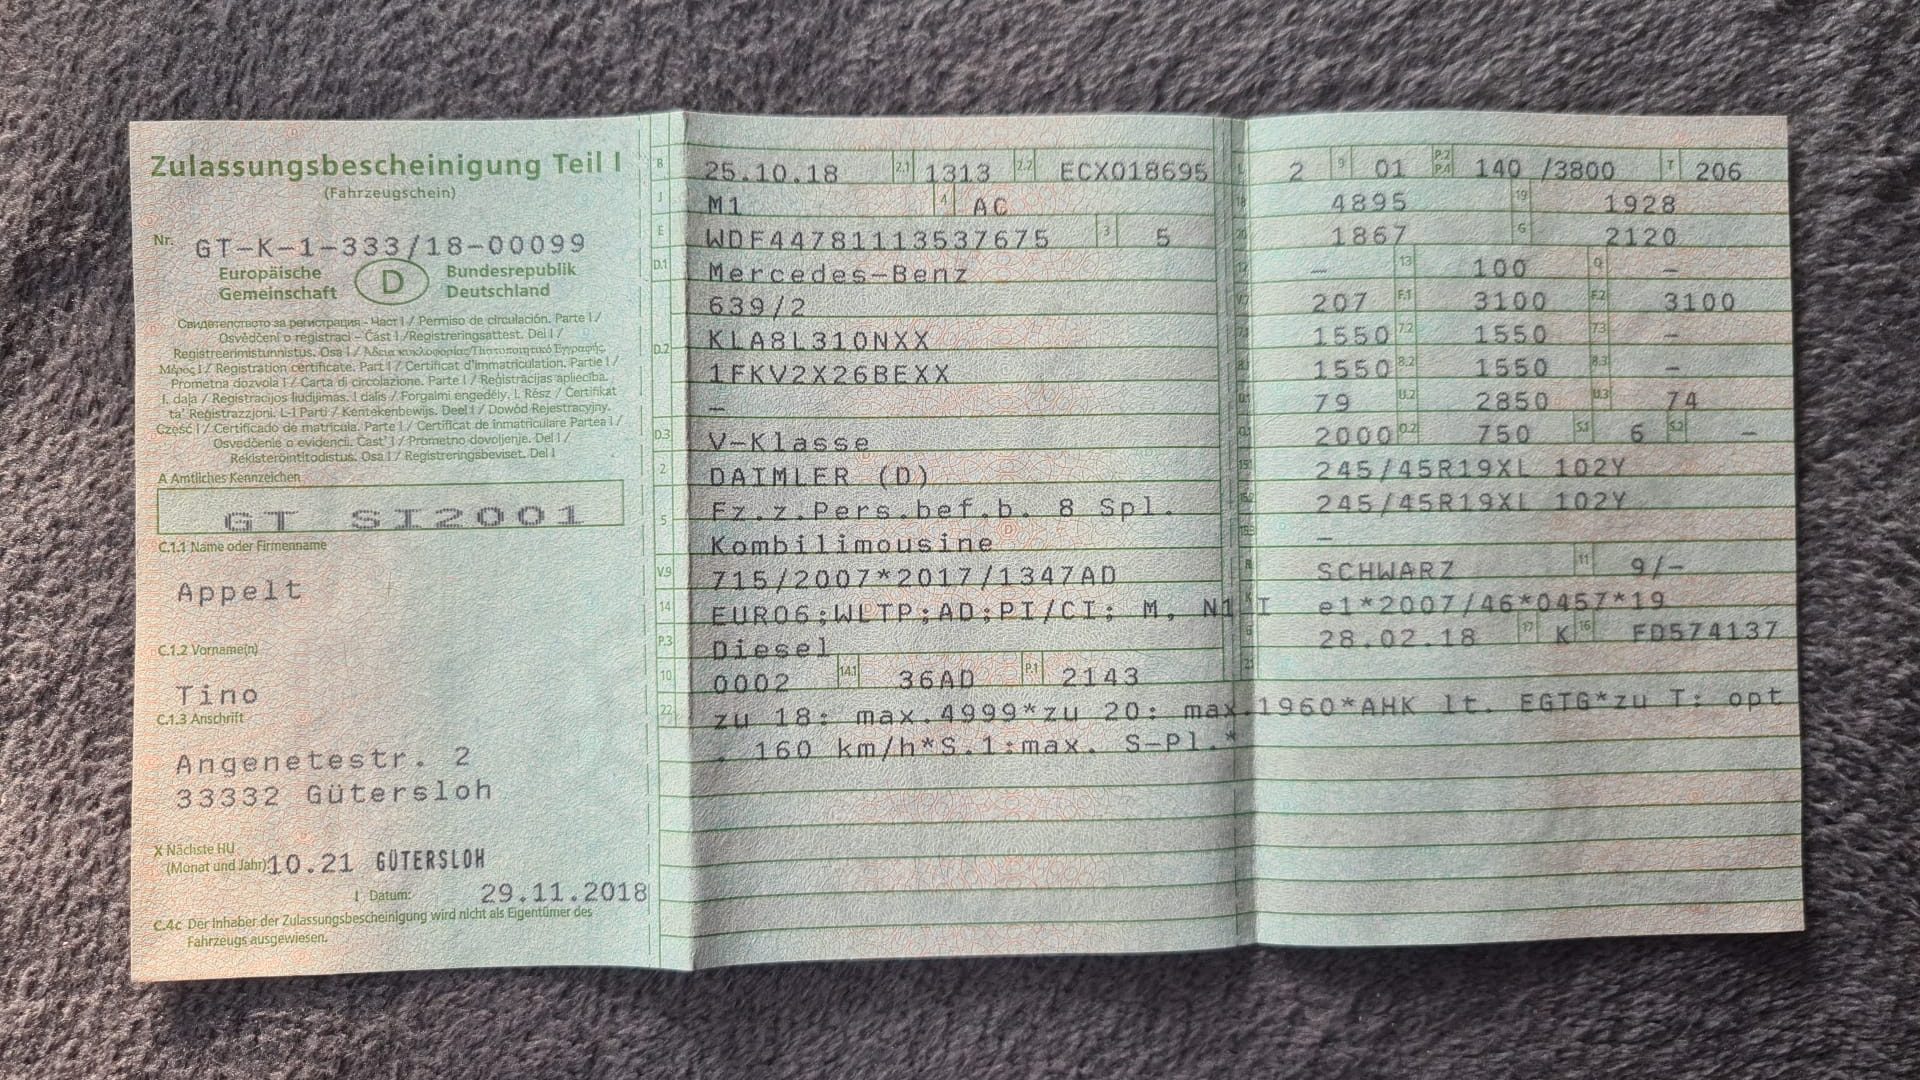 Zulassungsbescheinigung Teil I
(Fahrzeugschein)
Nr. GT-K-1-333/18-00099
Europäische Gemeinschaft
D
Bundesrepublik Deutschland
Свидетелството за регистрация – Част I / Permiso de circulación. Parte I /
Osvědčení o registraci – Část I / Registreringsattest. Del I /
Registreerimistunnistus. Osa I / Άδεια κυκλοφορίας/Πιστοποιητικό Εγγραφής.
Μέρος I / Registration certificate. Part I / Certificat d'immatriculation. Partie I /
Prometna dozvola I / Carta di circolazione. Parte I / Reģistrācijas apliecība.
I. daļa / Registracijos liudijimas. I dalis / Forgalmi engedély. I. Rész / Ċertifikat
ta' Reġistrazzjoni. L-I Parti / Kentekenbewijs. Deel I / Dowód Rejestracyjny.
Część I / Certificado de matrícula. Parte I / Certificat de înmatriculare Partea I /
Osvedčenie o evidencii. Časť I / Prometno dovoljenje. Del I /
Rekisteröintitodistus. Osa I / Registreringsbeviset. Del I
A Amtliches Kennzeichen
GT SI2001
C.1.1 Name oder Firmenname
Appelt
C.1.2 Vorname(n)
Tino
C.1.3 Anschrift
Angenetestr. 2
33332 Gütersloh
X Nächste HU
(Monat und Jahr) 10.21 GÜTERSLOH
I Datum: 29.11.2018
C.4c Der Inhaber der Zulassungsbescheinigung wird nicht als Eigentümer des
Fahrzeugs ausgewiesen.
B 25.10.18 2.1 1313 2.2 ECX018695
J M1 4 AC
E WDF44781113537675 3 5
D.1 Mercedes-Benz
639/2
D.2 KLA8L310NXX
1FKV2X26BEXX
–
D.3 V-Klasse
2 DAIMLER (D)
5 Fz.z.Pers.bef.b. 8 Spl.
Kombilimousine
V.9 715/2007*2017/1347AD
14 EURO6;WLTP;AD;PI/CI; M, N1 I
P.3 Diesel
10 0002 14.1 36AD P.1 2143
22 zu 18: max.4999*zu 20: max.1960*AHK lt. EGTG*zu T: opt
. 160 km/h*S.1:max. S-Pl.*
L 2 9 01 P.2 P.4 140 /3800 T 206
18 4895 19 1928
20 1867 G 2120
12 – 13 100 Q –
V.7 207 F.1 3100 F.2 3100
7.1 1550 7.2 1550 7.3 –
8.1 1550 8.2 1550 8.3 –
U.1 79 U.2 2850 U.3 74
O.1 2000 O.2 750 S.1 6 S.2 –
15.1 245/45R19XL 102Y
15.2 245/45R19XL 102Y
15.3 –
R SCHWARZ 11 9/–
K e1*2007/46*0457*19
6 28.02.18 17 K 16 FD574137
21